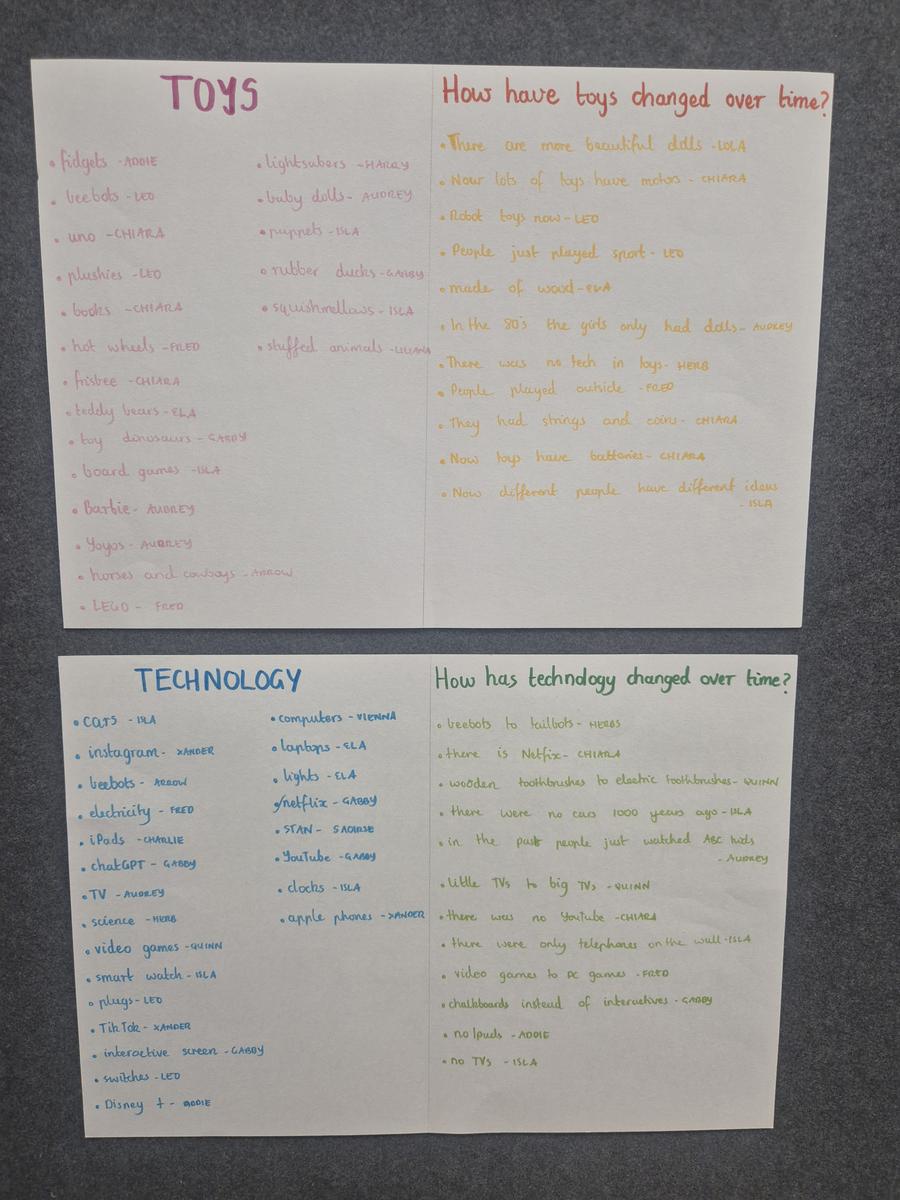 TOYS
• fidgets - ADDIE
• beebots - LEO
• uno - CHIARA
• plushies - LEO
• books - CHIARA
• hot wheels - FRED
• frisbee - CHIARA
• teddy bears - ELA
• toy dinosaurs - GABBY
• board games - ISLA
• Barbie - AUDREY
• Yoyos - AUDREY
• horses and cowboys - ARROW
• LEGO - FRED
• lightsabers - HARRY
• baby dolls - AUDREY
• puppets - ISLA
• rubber ducks - GABBY
• squishmellows - ISLA
• stuffed animals - LILIANA
How have toys changed over time?
• There are more beautiful dolls - LOLA
• Now lots of toys have motors - CHIARA
• Robot toys now - LEO
• People just played sport - LEO
• made of wood - ELA
• In the 80's the girls only had dolls - AUDREY
• There was no tech in toys - HERB
• People played outside - FRED
• They had strings and coins - CHIARA
• Now toys have batteries - CHIARA
• Now different people have different ideas
- ISLA
TECHNOLOGY
• cars - ISLA
• instagram - XANDER
• beebots - ARROW
• electricity - FRED
• iPads - CHARLIE
• chatGPT - GABBY
• TV - AUDREY
• science - HERB
• video games - QUINN
• smart watch - ISLA
• plugs - LEO
• TikTok - XANDER
• interactive screen - GABBY
• switches - LEO
• Disney + - ADDIE
• computers - VIENNA
• laptops - ELA
• lights - ELA
• netflix - GABBY
• STAN - SAOIRSE
• YouTube - GABBY
• clocks - ISLA
• apple phones - XANDER
How has technology changed over time?
• beebots to tailbots - HERBS
• there is Netflix - CHIARA
• wooden toothbrushes to electric toothbrushes - QUINN
• there were no cars 1000 years ago - ISLA
• in the past people just watched ABC kids
- AUDREY
• little TVs to big TVs - QUINN
• there was no YouTube - CHIARA
• there were only telephones on the wall - ISLA
• video games to PC games - FRED
• chalkboards instead of interactives - GABBY
• no Ipads - ADDIE
• no TVs - ISLA